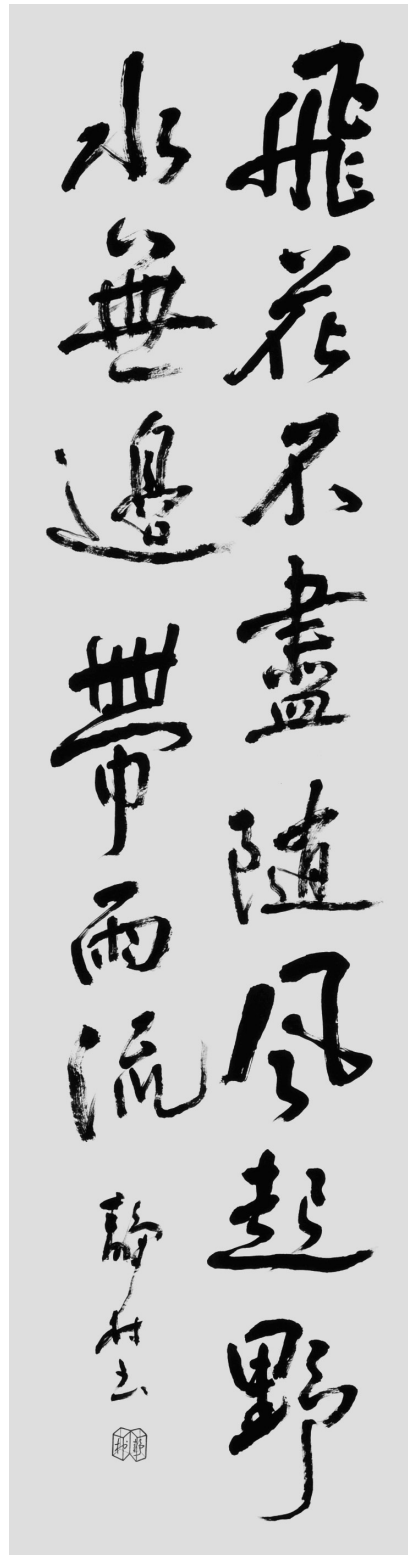 飛花不盡隨風起野
水無邊帶雨流
靜村书